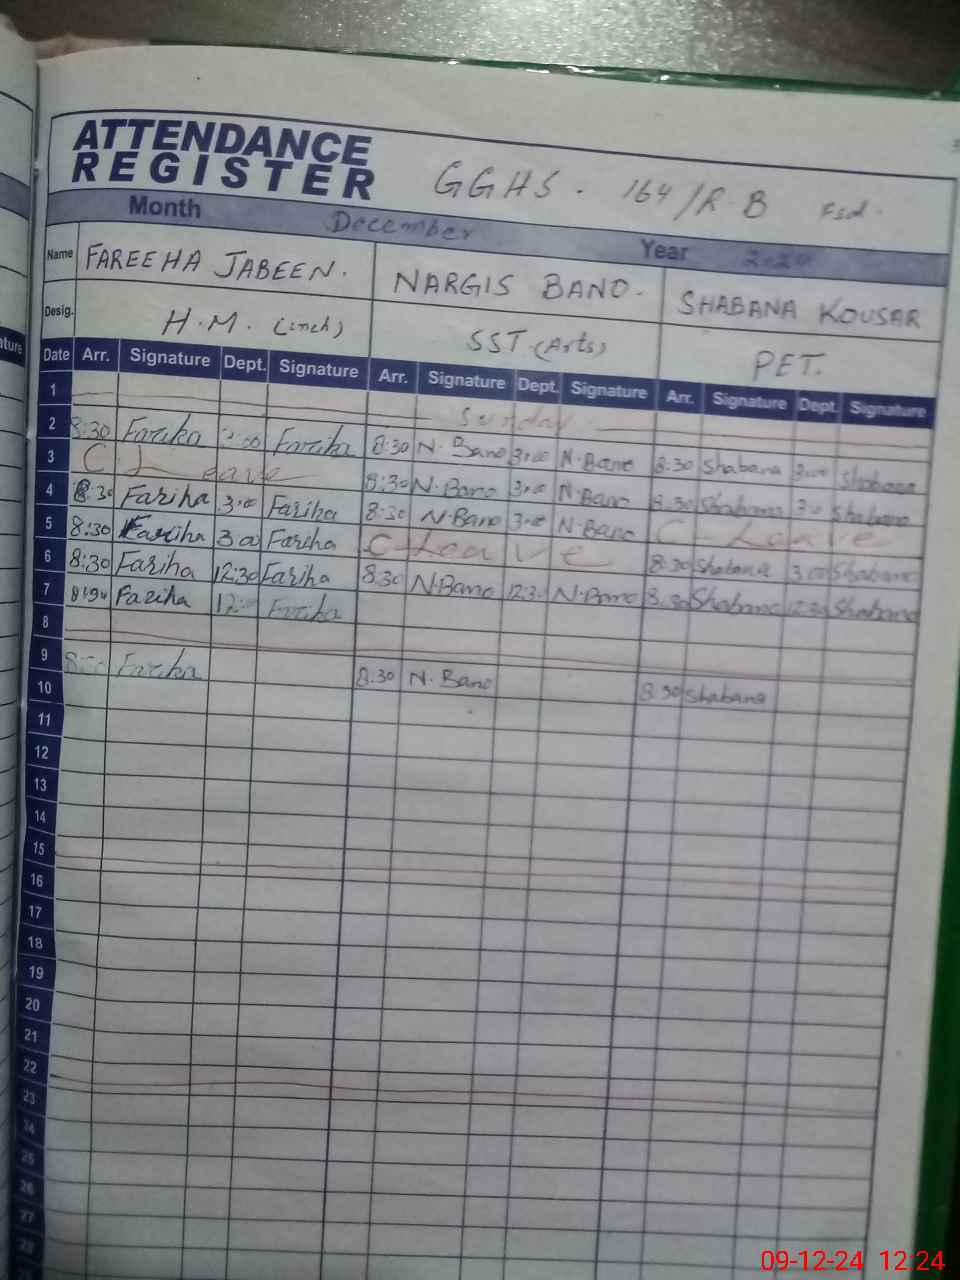 ATTENDANCE
REGISTER
GGHS. 164/R.B Fsd.
Month December Year 2024
Name FAREEHA JABEEN. NARGIS BANO. SHABANA KOUSAR
Desig. H.M. (inch) SST (Arts) PET.
Date Arr. Signature Dept. Signature Arr. Signature Dept. Signature Arr. Signature Dept. Signature
1 Sunday
2 8:30 Fariha 3:00 Fariha 8:30 N. Bano 3:00 N. Bano 8:30 Shabana 3:00 Shabana
3 C. Leave 8:30 N. Bano 3:00 N. Bano 8:30 Shabana 3:00 Shabana
4 8:30 Fariha 3:00 Fariha 8:30 N. Bano 3:00 N. Bano C - Leave
5 8:30 Fariha 3:00 Fariha C - Leave 8:30 Shabana 3:00 Shabana
6 8:30 Fariha 12:30 Fariha 8:30 N. Bano 12:30 N. Bano 8:30 Shabana 12:30 Shabana
7 Fariha Fariha
8
9 8:30 Fariha 8:30 N. Bano 8:30 Shabana
10
11
12
13
14
15
16
17
18
19
20
21
22
23
24
25
26
27
28
09-12-24 12:24